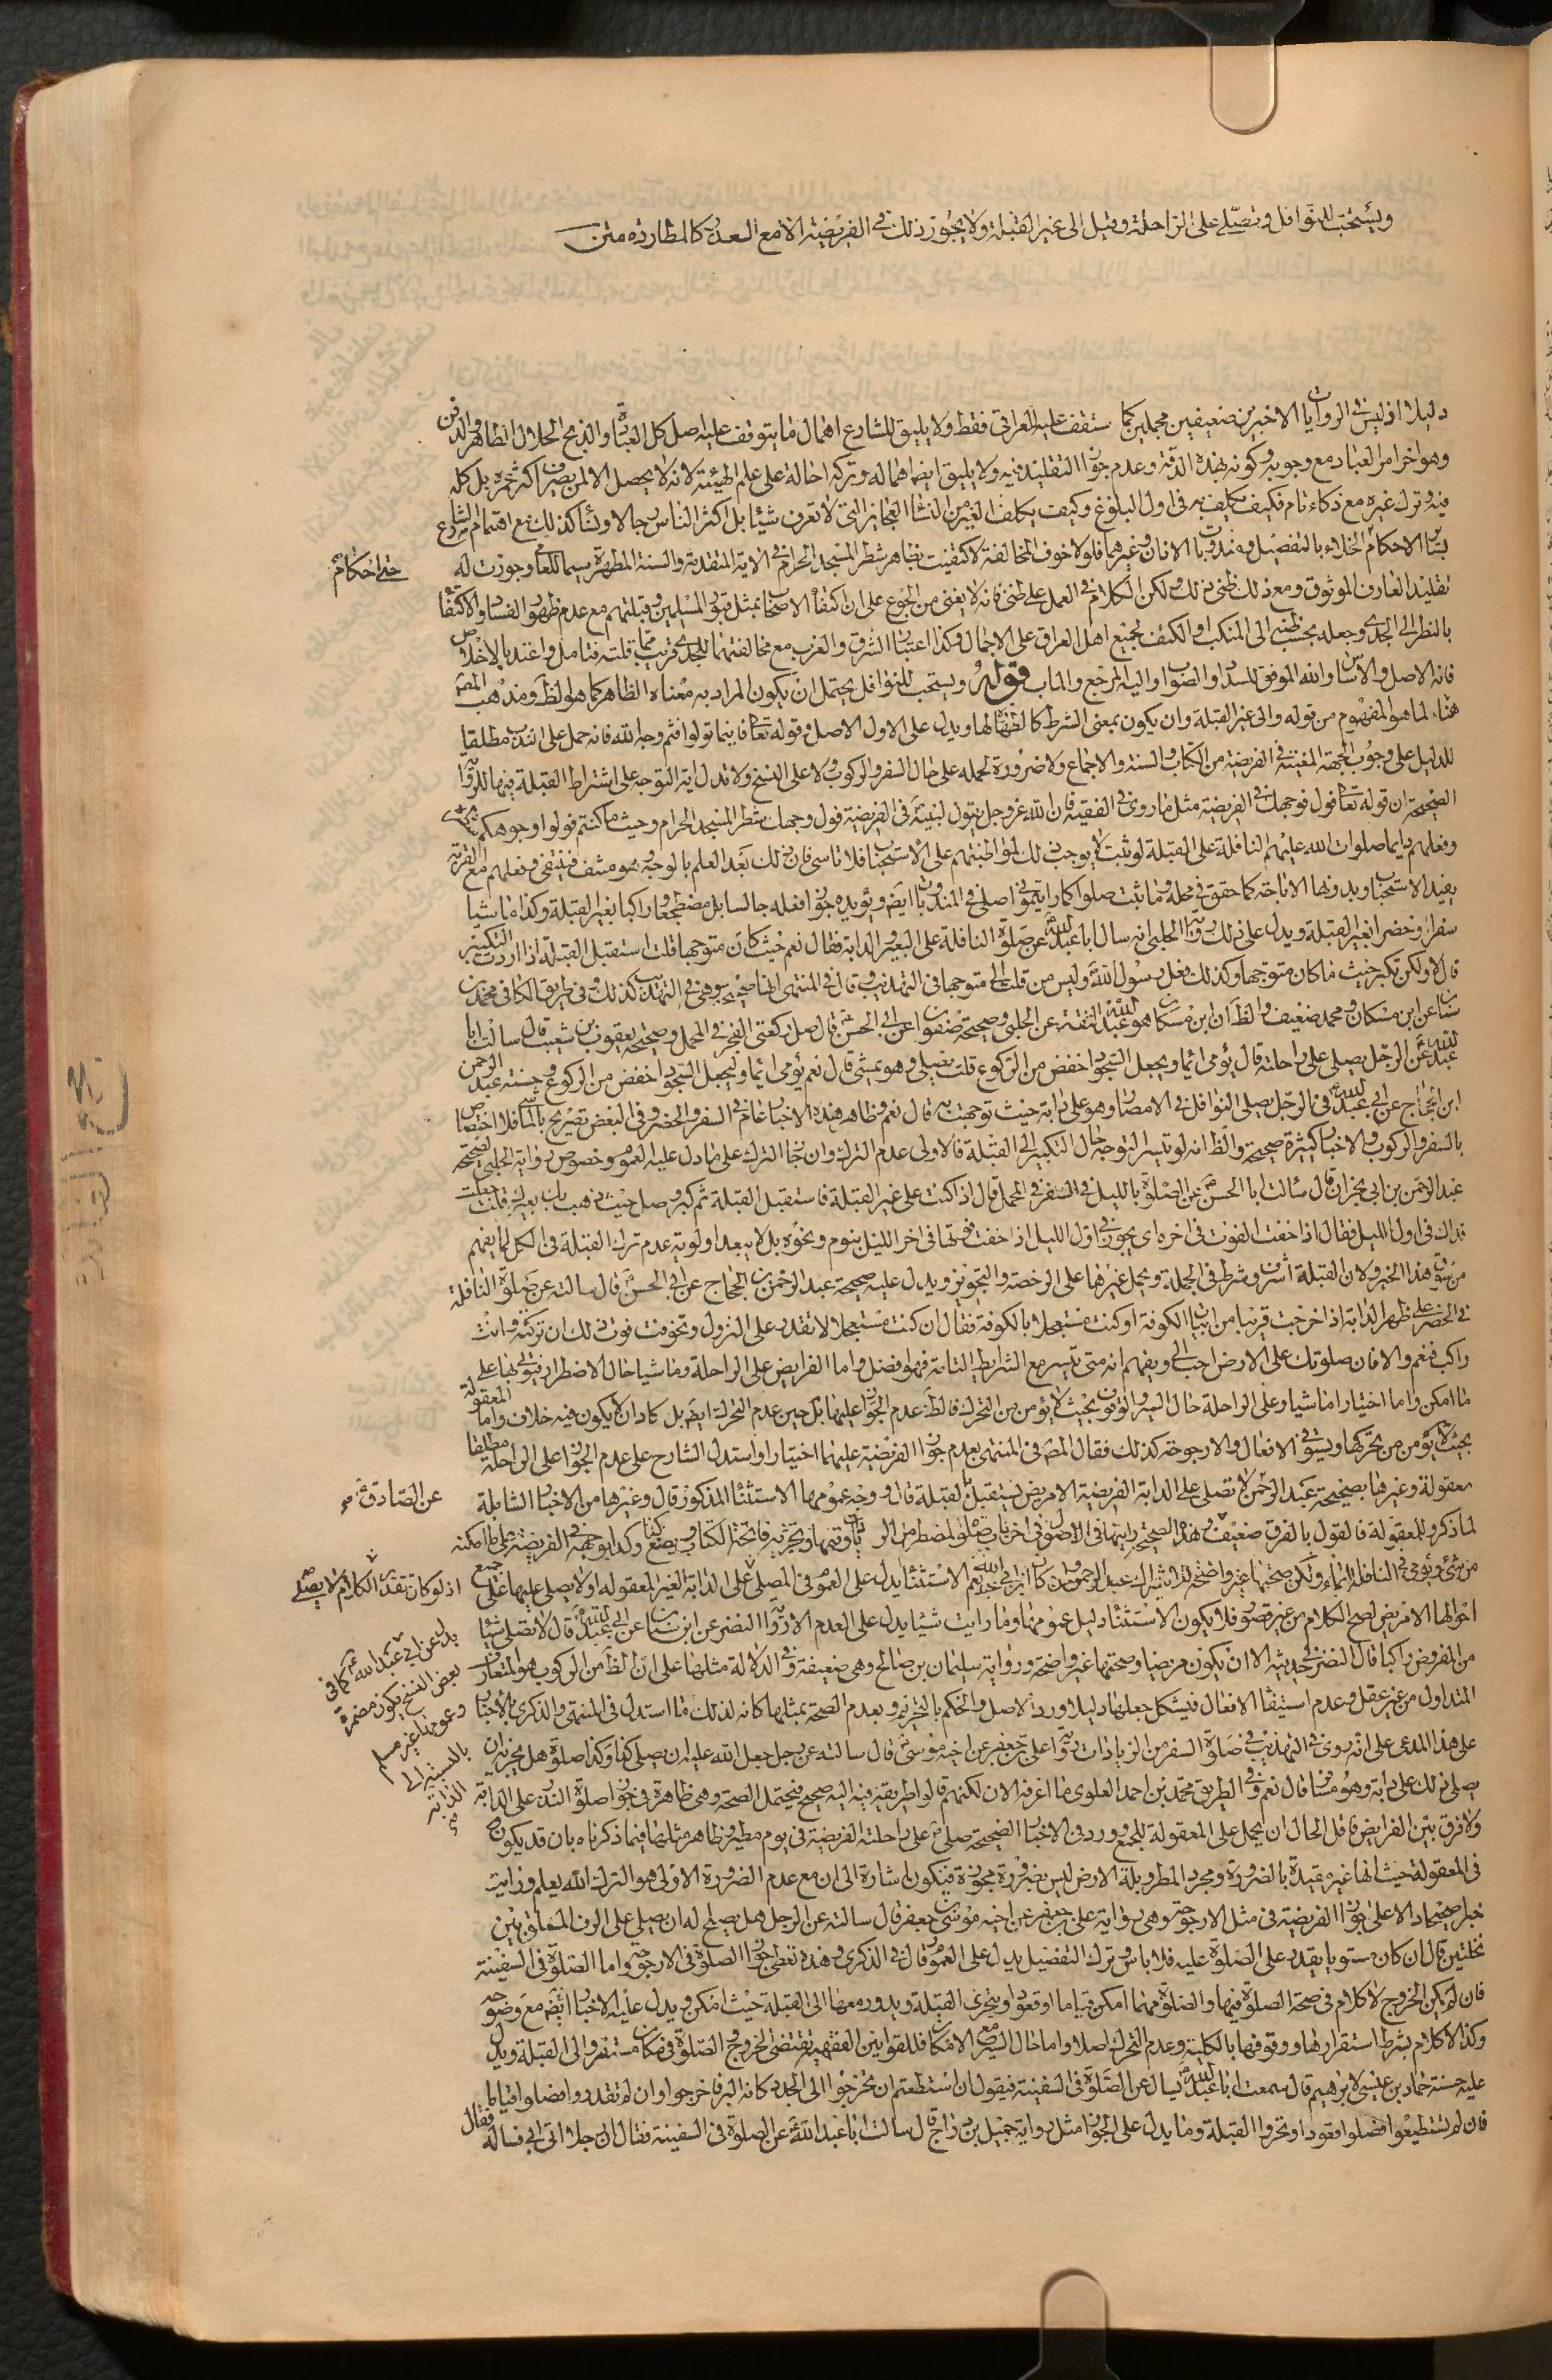 ويستحب للنوافل وتصلى على الراحلة وقيل الى غير القبلة ولا يجوز ذلك في الفريضة الا مع العذر كالمطاردة متن
دليلا اذ ليس في الروايات الا خبرين ضعيفين مجملين كما ستقف عليه للعراقى فقط ولا يليق للشارع اهمال ما يتوقف عليه اصل كل العبادة والذبح الحلال الطاهر والدفن
وهو اخر امر العباد مع وجوبه وكونه بهذه الدقة وعدم جواز التقليد فيه ولا يليق ايضا اهماله وتركه احالة على علم الهيئة لانه لا يحصل الا لمن يصرف اكثر عمره بل كله
فيه وترك غيره مع ذكاء تام فكيف يكلف به في اول البلوغ وكيف يكلف الغير من النساء العجايز التى لا تعرف شيئا بل اكثر الناس رجالا ونساء كذلك مع اهتمام الشارع
ببيان الاحكام الخلاء بالتفصيل ومندوبات الاذان وغيرهما فلولا خوف المخالفة لاكتفيت بظاهر شطر المسجد الحرام في الاية المتقدمة والسنة المطهرة سيما للعامى وجوزت له
حتى احكام
تقليد العارف الموثوق ومع ذلك ظنى ذلك ولكن الكلام في العمل على ظنى فانه لا يغنى من الجوع على ان اكتفاء الاصحاب بمثل قبور المسلمين وقبلتهم مع عدم ظهور الفساد والاكتفاء
بالنظر الى الجدى وجعله بحسب ظنهم الى المنكب او الكتف لجميع اهل العراق على الاجمال وكذا اعتبار الشرق والغرب مع مخالفتهما للجدى قريب مما قلته فتامل واعتد بالاخلاص
فانه الاصل والاساس والله الموفق للسداد والصواب واليه المرجع والماب قوله ويستحب للنوافل يحتمل ان يكون المراد به معناه الظاهر كما هو الظ ومذهب المصـ
هنا لما هو المفهوم من قوله والى غير القبلة وان يكون بمعنى الشرط كالطهارة لها ويدل على الاول الاصل وقوله تعا فاينما تولوا فثم وجه الله فانه حمل على الندب مطلقا
للدليل على وجوب الجهة المعينة في الفريضة من الكتاب والسنة والاجماع ولا ضرورة لحمله على حال السفر والركوب ولا على النسخ ولا تدل اية التوجه على اشتراط القبلة فيها للرواية
الصحيحة ان قوله تعا فول وجهك في الفريضة مثل ما روى في الفقيه فان الله عز وجل يقول لنبيه في الفريضة فول وجهك شطر المسجد الحرام وحيث ما كنتم فولوا وجوهكم شطره
وفعلهم دايما صلوات الله عليهم النافلة على القبلة لو ثبت لا يوجب ذلك لمواظبتهم على الاستحباب فلا تاسى فان ذلك بعد العلم بالوجه وهو منتف فينتفى وفعلهم مع القربة
يفيد الاستحباب وبدونها الاباحة كما حقق في محله وما ثبت صلوا كما رايتمونى اصلى في المندوبات ايض ويؤيده جواز فعله جالسا بل مضطجعا وراكبا بغير القبلة وكذا ماشيا
سفرا وحضرا بغير القبلة ويدل على ذلك رواية الحلبى انه سال ابا عبد الله عن صلوة النافلة على البعير والدابة فقال نعم حيث كان متوجها قلت استقبل القبلة اذا اردت التكبير
قال لا ولكن تكبر حيث ما كان متوجها وكذلك فعل رسول الله وليس من قلت الى متوجها في التهذيب وقال في المنتهى انها صحيحة وهى في التهذيب كذلك وفي طريق الكافى محمد بن
سنان عن ابن مسكان ومحمد ضعيف والظ ان ابن مسكان هو عبد الله الثقة عن الحلبى وصحيحة صفوان عن ابى الحسن قال صل ركعتى الفجر في المحمل وصحيحة يعقوب بن شعيب قال سالت ابا
عبد الله عن الرجل يصلى على راحلته قال يؤمى ايماء ويجعل السجود اخفض من الركوع قلت يصلى وهو يمشى قال نعم يؤمى ايماء وليجعل السجود اخفض من الركوع وحسنة عبد الرحمن
ابن الحجاج عن ابى عبد الله في الرجل يصلى النوافل في الامصار وهو على دابته حيث توجهت به قال نعم وظاهر هذه الاخبار عام في السفر والحضر وفي البعض تصريح بالمشى فلا اختصاص
بالسفر والركوب والاخبار كثيرة صحيحة والظ انه لو تيسر التوجه حال التكبير الى القبلة فالاولى عدم الترك وان جاز الترك على ما دل عليه العموم وخصوص رواية الحلبى لصحيحة
عبد الرحمن بن ابى نجران قال سالت ابا الحسن عن الصلوة بالليل في السفر في المحمل قال اذا كنت على غير القبلة فاستقبل القبلة ثم كبر وصل حيث ذهب بك بعيرك قلت جعلت
فداك في اول الليل فقال اذا خفت الفوت في اخره اى يجوز في اول الليل اذا خفت فوتها في اخر الليل بنوم ونحوه بل لا يبعد اولوية عدم ترك القبلة في الكل لما يفهم
من سوق هذا الخبر ولان القبلة اشرف وشرط في الجملة ويحمل غيرها على الرخصة والتجويز ويدل عليه صحيحة عبد الرحمن بن الحجاج عن ابى الحسن قال سالته عن صلوة النافلة
في الحضر على ظهر الدابة اذا خرجت قريبا من ابيات الكوفة او كنت مستعجلا بالكوفة فقال ان كنت مستعجلا لا تقدر على النزول وتخوفت فوت ذلك ان تركته وانت
راكب فنعم والا فان صلوتك على الارض احب الى ويفهم انه متى تيسر مع الشرايط التامة فهو افضل واما الفرايض على الراحلة وماشيا حال الاضطرار فيؤتى بها على
ما امكن واما اختيارا ماشيا وعلى الراحلة حال السير والوقوف بحيث لا يؤمن من التحرك فالظ عدم الجواز عليها بل حين عدم التحرك ايض بل كاد ان لا يكون فيه خلاف واما المعقولة
بحيث يؤمن من تحركها ويستوفى الافعال والارجوحة كذلك فقال المصـ في المنتهى بعدم جواز الفريضة عليهما اختيارا واستدل الشارح على عدم الجواز على الراحلة مطلقا
معقولة وغيرها بصحيحة عبد الرحمن لا تصلى على الدابة الفريضة الا مريض يستقبل القبلة قال ووجه عمومها الاستثناء المذكور قال وغيرها من الاخبار الشاملة
عن الصادق ع
لما ذكر وللمعقولة فالقول بالفرق ضعيف وهذه الصحيحة رايتها في الاصول في اخر باب صلوة المضطر من الزيادات وتمامها وتجزيه فاتحة الكتاب ويضع وجهه في الفريضة على ما امكنه
من شئ ويؤمى في النافلة ايماء ولكن صحتها غير واضحة لاشتراك عبد الرحمن وان كان ابن ابى عبد الله نعم الاستثناء يدل على العموم في المصلى على الدابة الغير المعقولة اولا يصلى عليها على جميع
اذ لو كان تقدير الكلام لا يصلى
احوالها الا مريض لصح الكلام من غير قصور فلا يكون الاستثناء دليل عمومها وما رايت شيئا يدل على العدم الا رواية النضر عن ابن سنان عن ابى عبد الله قال لا تصل شيئا
من المفروض راكبا قال النضر في حديثه الا ان يكون مريضا وصحتها غير واضحة ورواية سليمان بن صالح وهى ضعيفة وفي الدلالة مثلها على ان الظ من الركوب هو المتعارف
المتداول من غير عقل وعدم استيفاء الافعال فيشكل جعلها دليلا ورد الاصل والحكم بالتحريم وبعدم الصحة بمثلها كانه لذلك ما استدل في المنتهى والذكرى بالاخبار
على هذا المدعى على انه روى في التهذيب في صلوة السفر من الزيادات رواية على بن جعفر عن اخيه موسى قال سالته عن رجل جعل الله عليه ان يصلى كذا وكذا صلوة هل يجزيه ان
يصلى ذلك على دابته وهو مسافر قال نعم وفي الطريق محمد بن احمد العلوى ما اعرفه الان لكنهم قالوا طريقه فيه اليه صحيح فيحتمل الصحة وهى ظاهرة في جواز صلوة النذر على الدابة
ولا فرق بين الفرايض فاقل الحال ان يحمل على المعقولة للجمع وورد في الاخبار الصحيحة صلى على راحلته الفريضة في يوم مطير وظاهر مثلها فيما ذكرناه بان قد يكون
في المعقولة حيث انها غير مقيدة بالضرورة ومجرد المطر وبلة الارض ليس بضرورة مجوزة فيكون اشارة الى ان مع عدم الضرورة الاولى هو الترك الله يعلم ورايت
خبرا صحيحا دالا على جواز الفريضة في مثل الارجوحة وهى رواية على بن جعفر عن اخيه موسى بن جعفر قال سالته عن الرجل هل يصلح له ان يصلى على الرف المعلق بين
نخلتين قال ان كان مستويا يقدر على الصلوة عليه فلا باس وترك التفصيل يدل على العموم قال في الذكرى وهذه تعطى جواز الصلوة في الارجوحة واما الصلوة في السفينة
فان لم يكن الخروج لا كلام في صحة الصلوة فيها والصلوة مهما امكن قياما او قعودا ويتحرى القبلة ويدور معها الى القبلة حيث امكن ويدل عليه الاخبار ايض مع وضوحه
وكذا لا كلام بشرط استقرارها ووقوفها بالكلية وعدم التحرك اصلا واما حال السير مع الامكان فللقوانين الفقهية تقتضى الخروج والصلوة في مكان مستقر والى القبلة ويدل
عليه حسنة حماد بن عيسى لابرهيم قال سمعت ابا عبد الله يسال عن الصلوة في السفينة فيقول ان استطعتم ان تخرجوا الى الجدد كانه البر فاخرجوا وان لم تقدروا فصلوا قياما
فان لم تستطيعوا فصلوا قعودا وتحروا القبلة وما يدل على الجواز مثل رواية جميل بن دراج قال سالت ابا عبد الله عن الصلوة في السفينة فقال ان رجلا اتى ابى فساله فقال
يدل عن ابى عبد الله ع كما في
بعض النسخ يكون مضمرة
وعمومها غير مسلم
بالنسبة الى
الدابة